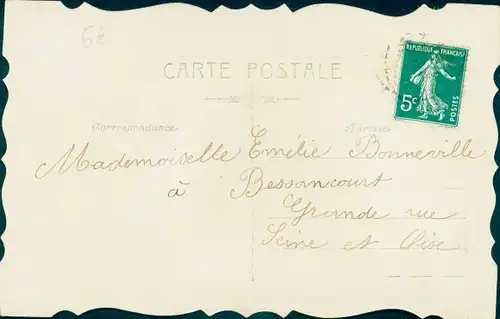 6€
CARTE POSTALE
REPUBLIQUE FRANÇAISE
5c
POSTES
Correspondance
Adresse
Mademoiselle Emélie Bonneville
à Bessancourt
Grande rue
Seine et Oise